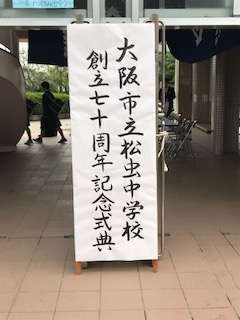 大阪市立松虫中学校
創立七十周年記念式典